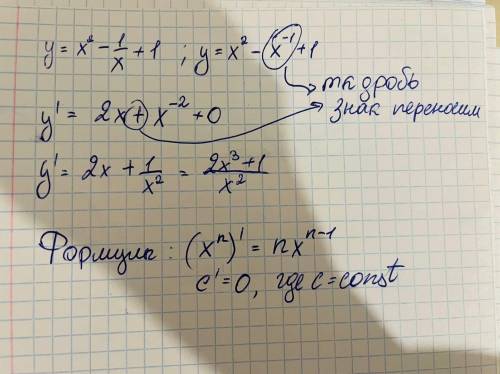 y = x² - 1/x + 1 ; y = x² - x⁻¹ + 1
тк дробь
знак переносим
y' = 2x + x⁻² + 0
y' = 2x + 1/x² = (2x³+1)/x²
Формулы: (xⁿ)' = nxⁿ⁻¹
c' = 0, где c = const